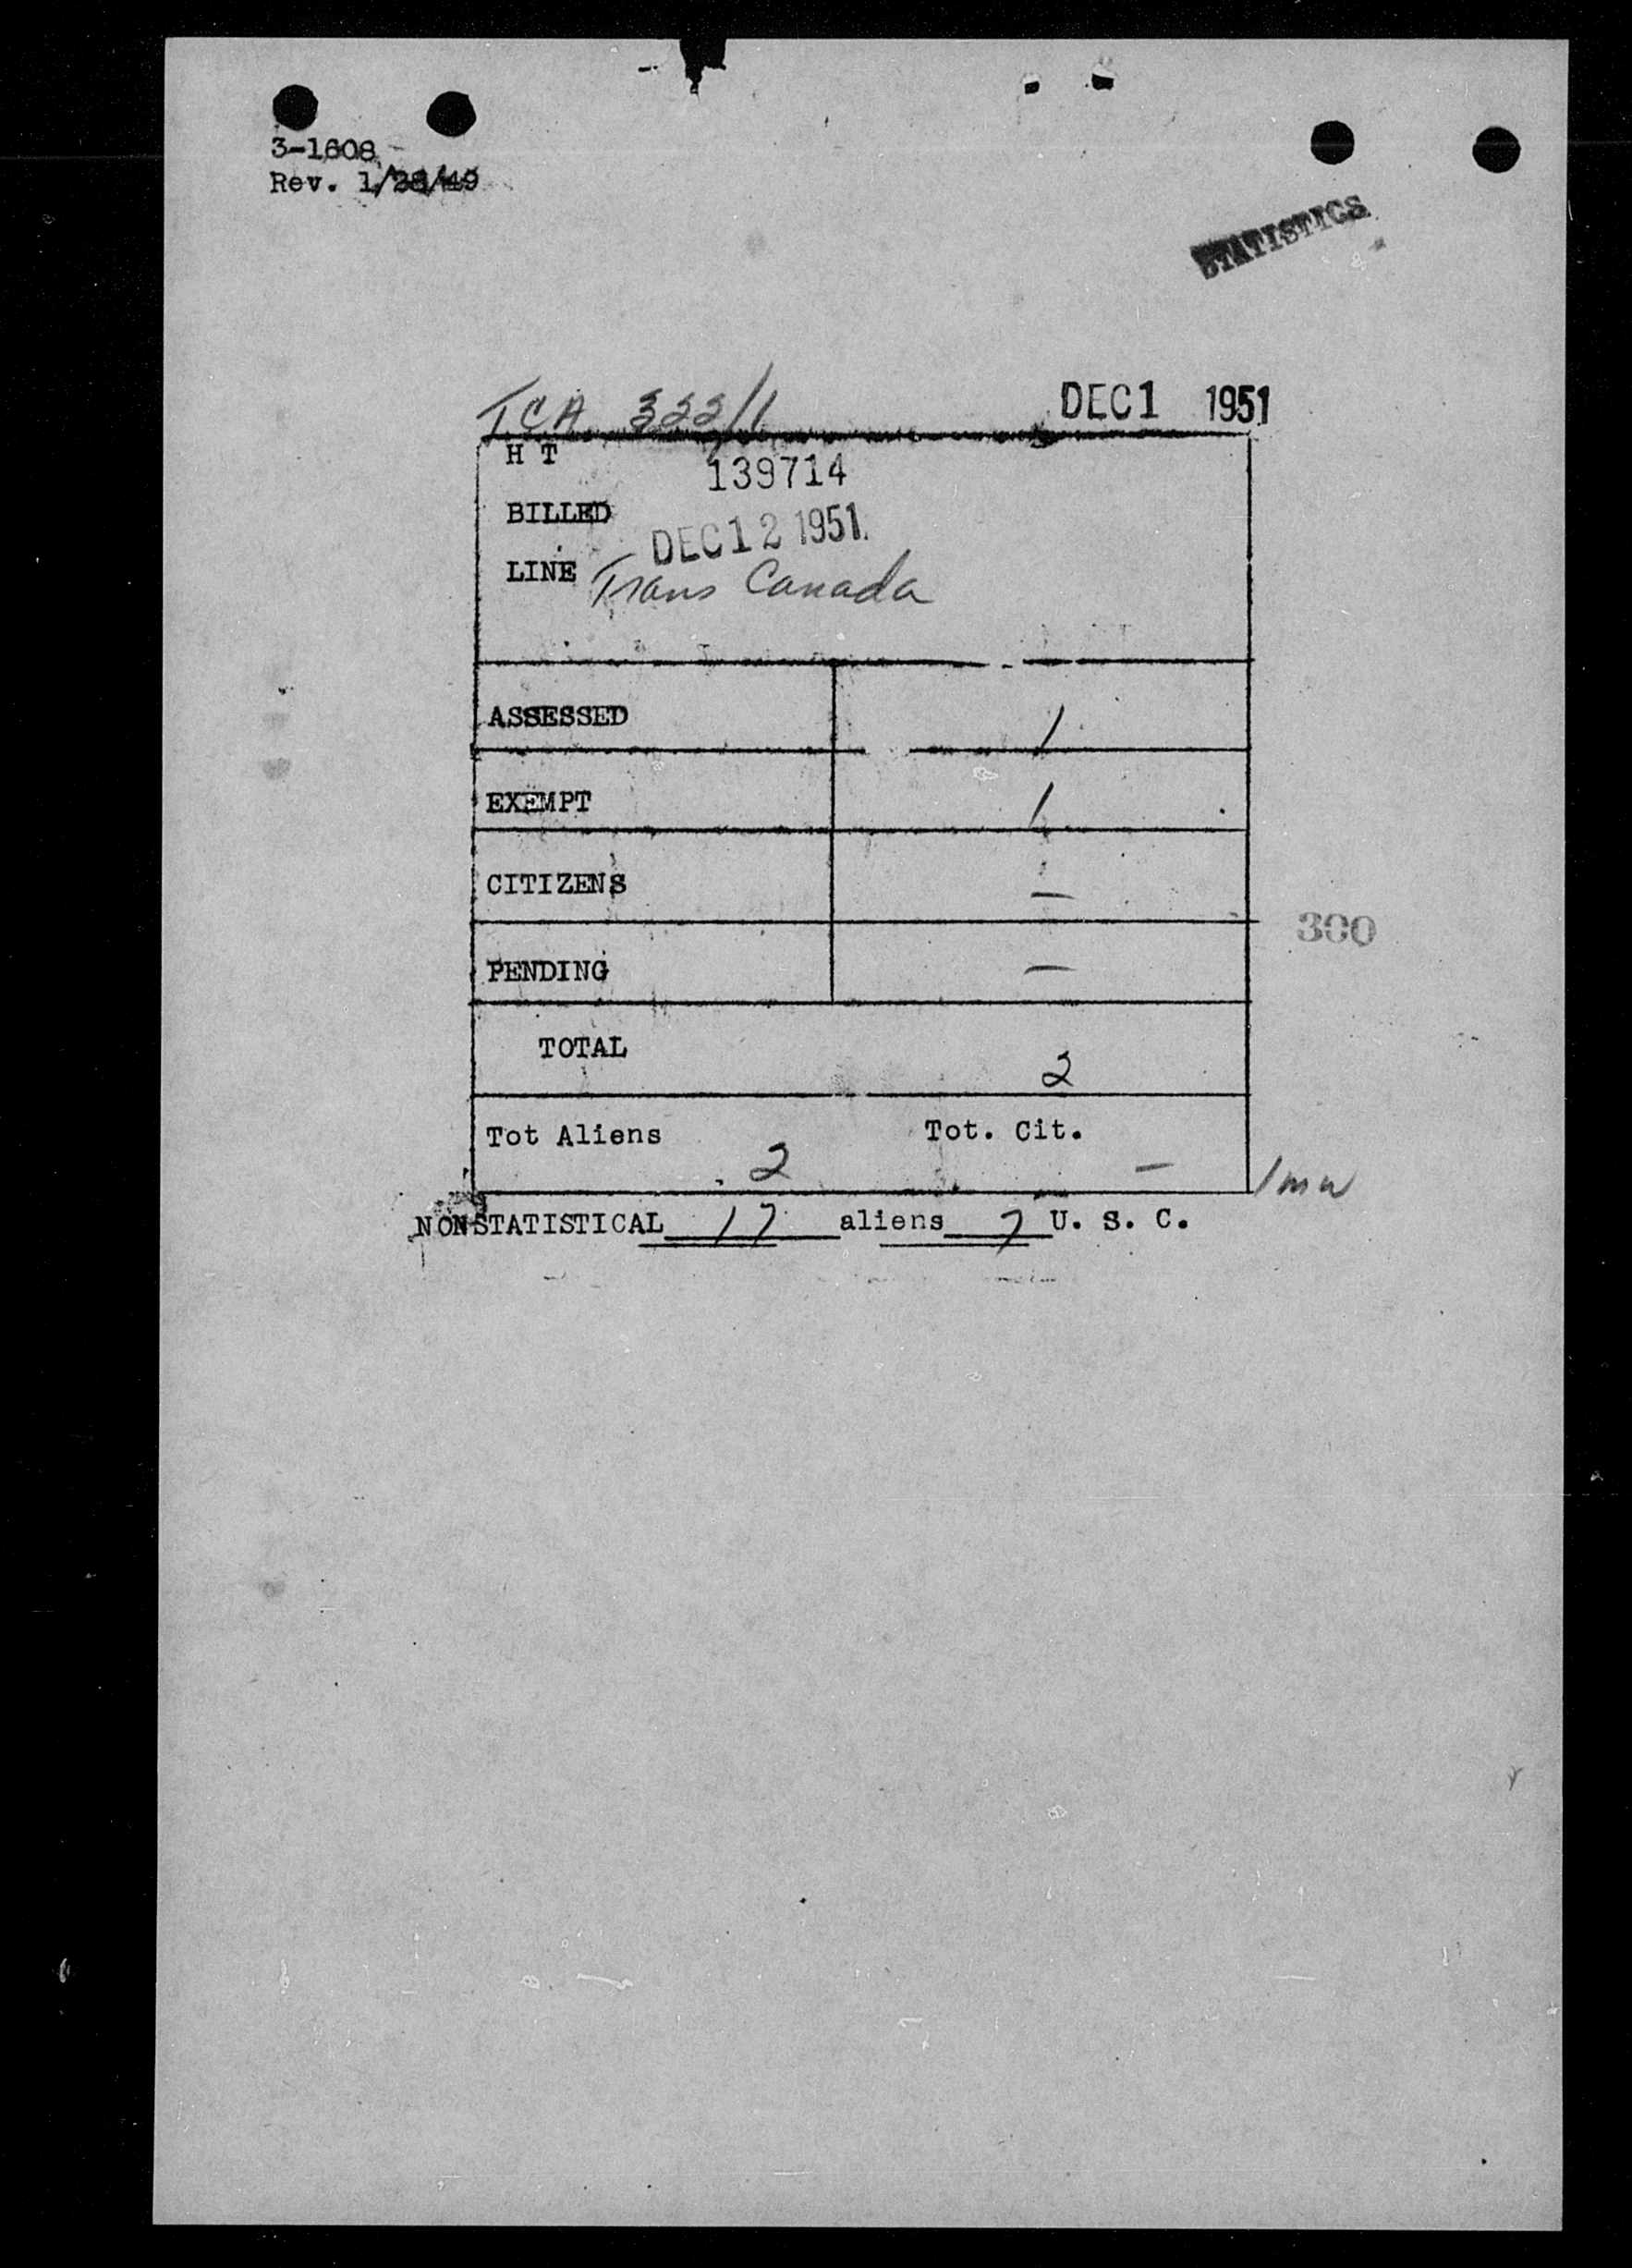 3-1608
Rev. 1/28/49
STATISTICS
TCA 322/1 DEC 1 1951
H T 139714
BILLED DEC 12 1951
LINE Trans Canada
ASSESSED 1
EXEMPT 1
CITIZENS —
300
PENDING —
TOTAL 2
Tot Aliens 2 Tot. Cit. —
NONSTATISTICAL 17 aliens 7 U. S. C.